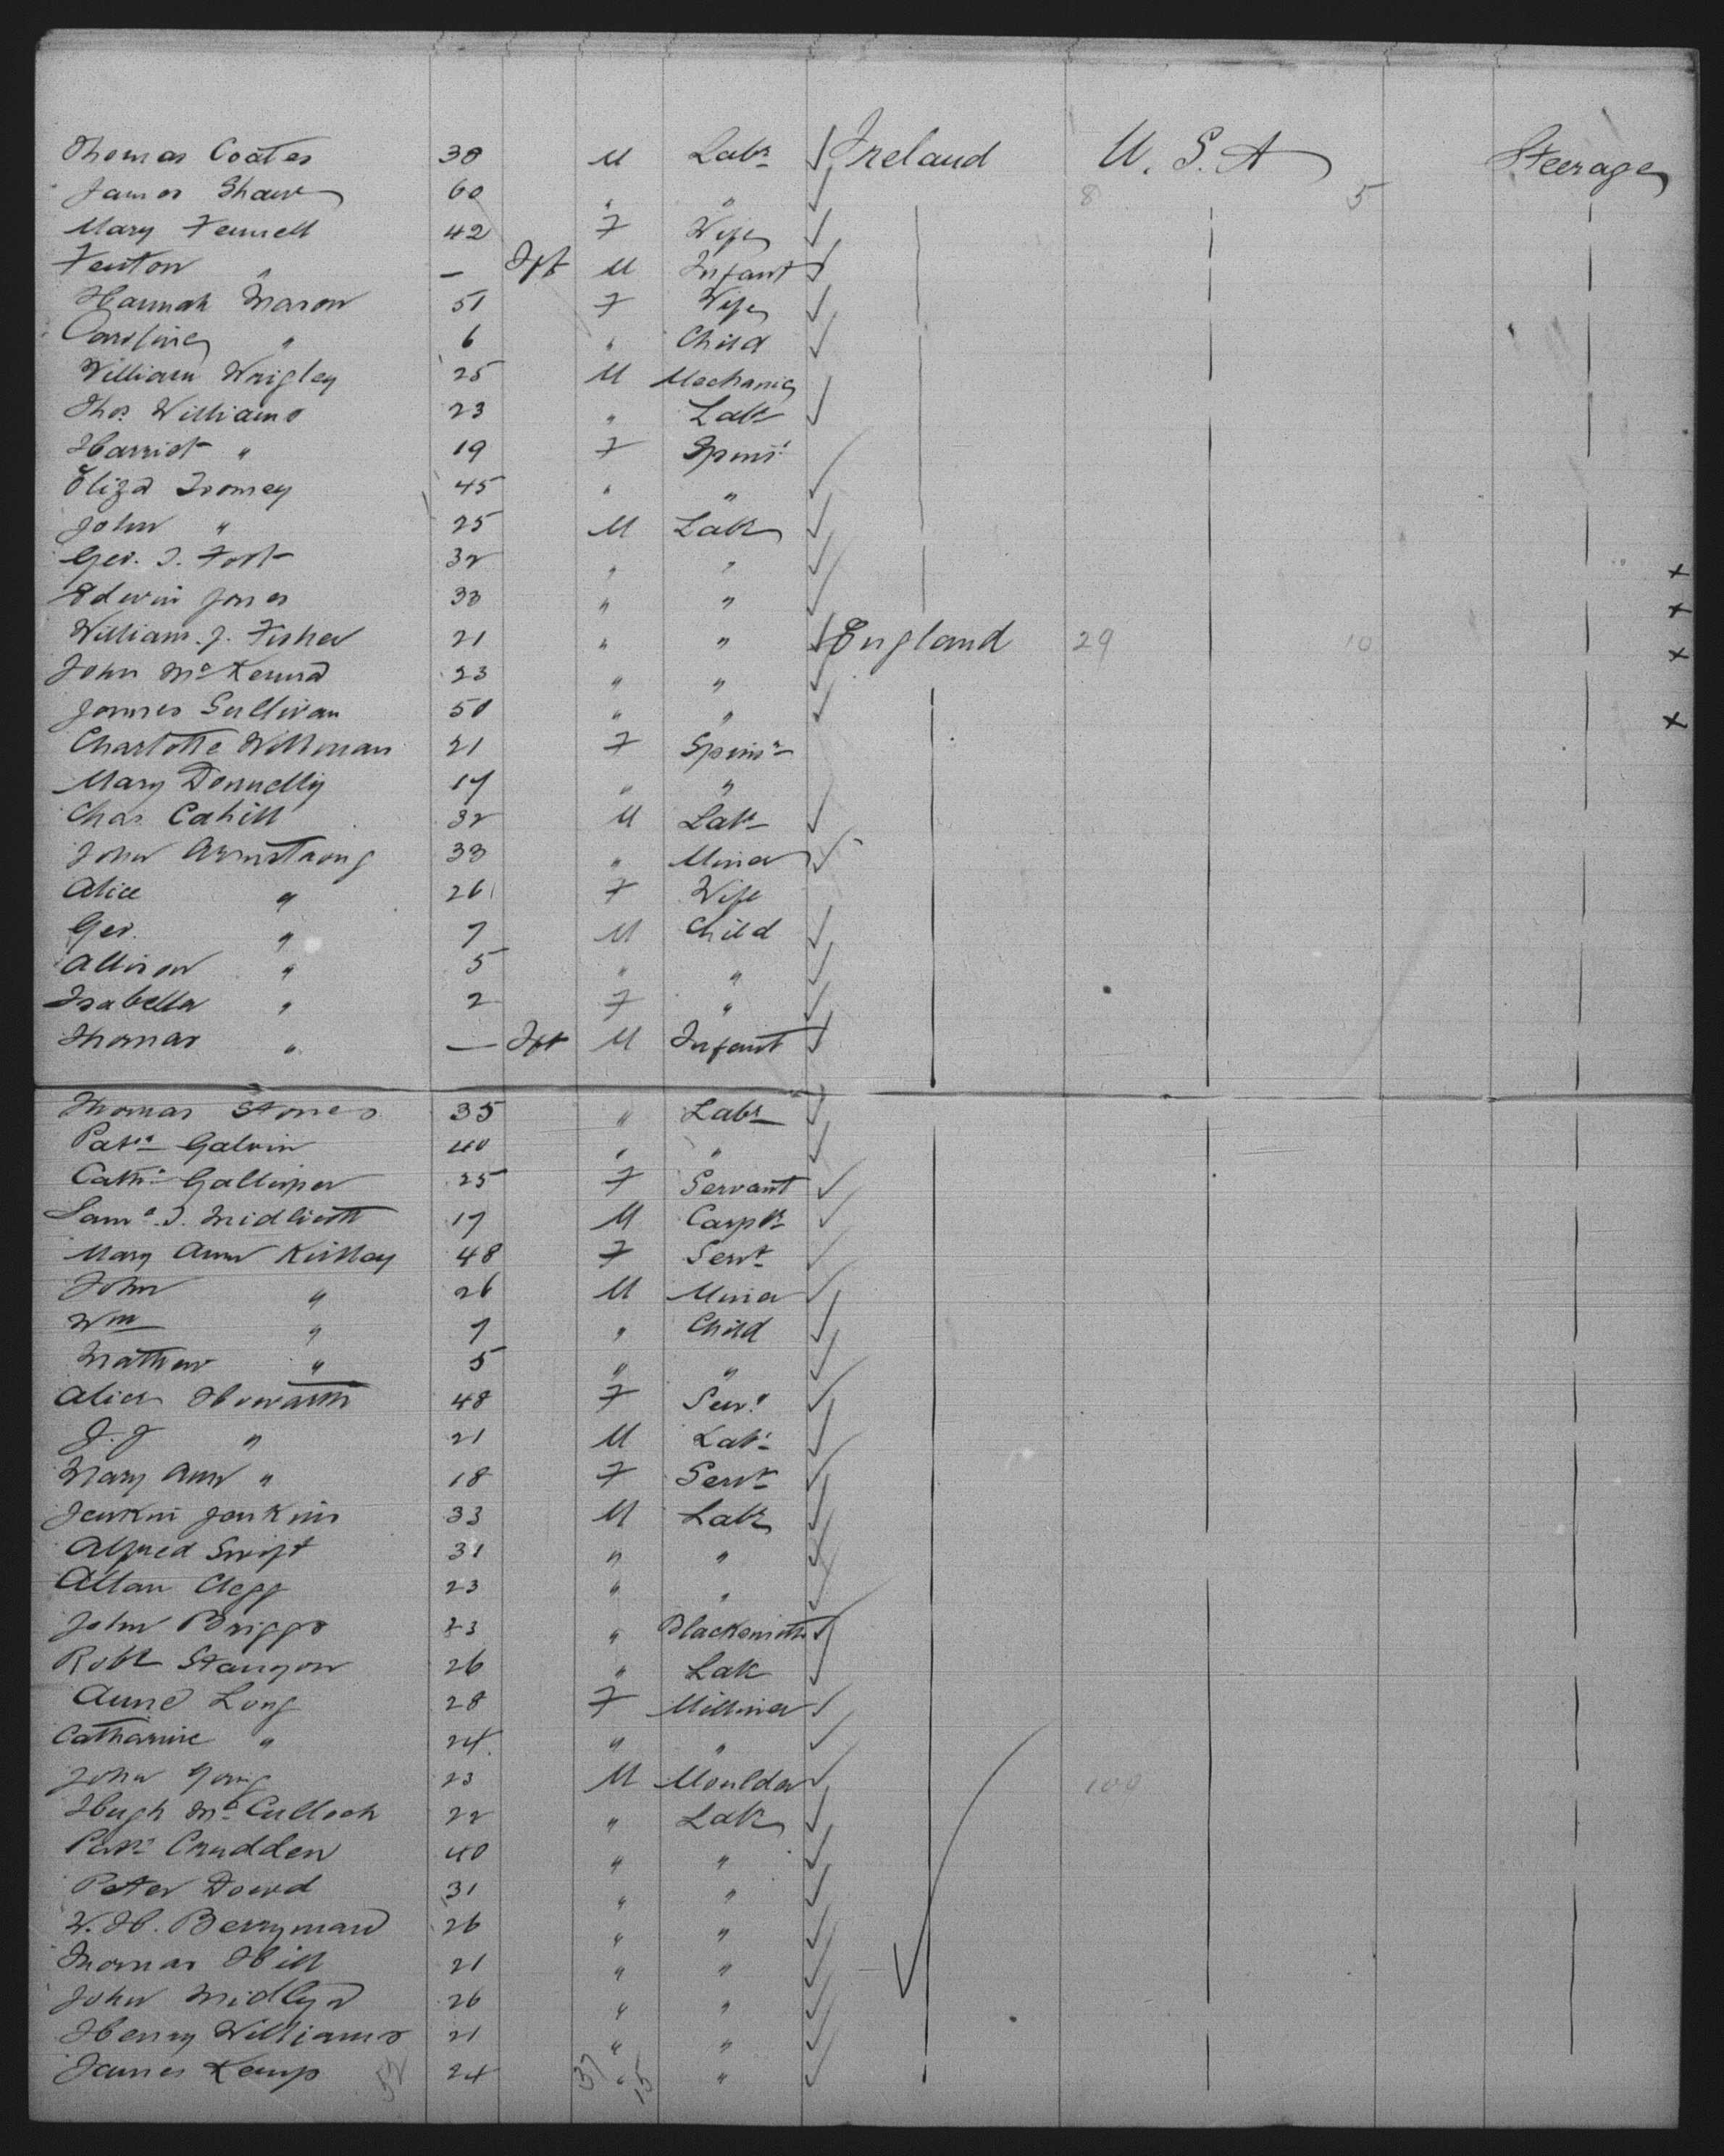 Thomas Coates 38 M Labr Ireland U.S.A Steerage
James Shaw 60 " " 8 5
Mary Fennell 42 F Wife
Fenton " — Ift M Infant
Hannah Mason 51 F Wife
Caroline " 6 " Child
William Wrigley 25 M Mechanic
Thos Williams 23 " Labr
Harriet " 19 F Spinr
Eliza Toomey 45 " "
John " 25 M Labr
Geo. T. 32 " " x
Edwin Jones 38 " " x
William J. Fisher 21 " " England 29 10 x
John McKenna 23 " "
James Sullivan 50 " " x
Charlotte Willman 21 F Spinr
Mary Donnelly 17 " "
Chas Cahill 32 M Labr
John Armstrong 38 " Miner
Alice " 26 F Wife
Geo. " 7 M Child
Allison " 5 " "
Isabella " 2 F "
Thomas " — Ift M Infant
Thomas Stones 35 " Labr
Patk Galvin 40 " "
Cath 25 F Servant
Saml. T. 17 M Carpr
Mary Ann 48 F Servt
John " 26 M Miner
Wm " 7 " Child
Mathew " 5 " "
Alice Howarth 48 F Servt
J. J " 21 M Labr
Mary Ann " 18 F Servt
Jenkin Jenkins 33 M Labr
Alfred Swift 31 " "
Allan Clegg 23 " "
John Briggs 23 " Blacksmith
Robt 26 " Labr
Anne Long 28 F Milliner
Catharine " 24 " "
John Young 23 M Moulder 100
Hugh McCulloch 22 " Labr
Patk Crudden 40 " "
Peter Dowd 31 " "
W. H. Berryman 26 " "
Thomas Hill 21 " "
John 26 " "
Henry Williams 21 " "
James Kemp 52 24 37 " 15 "